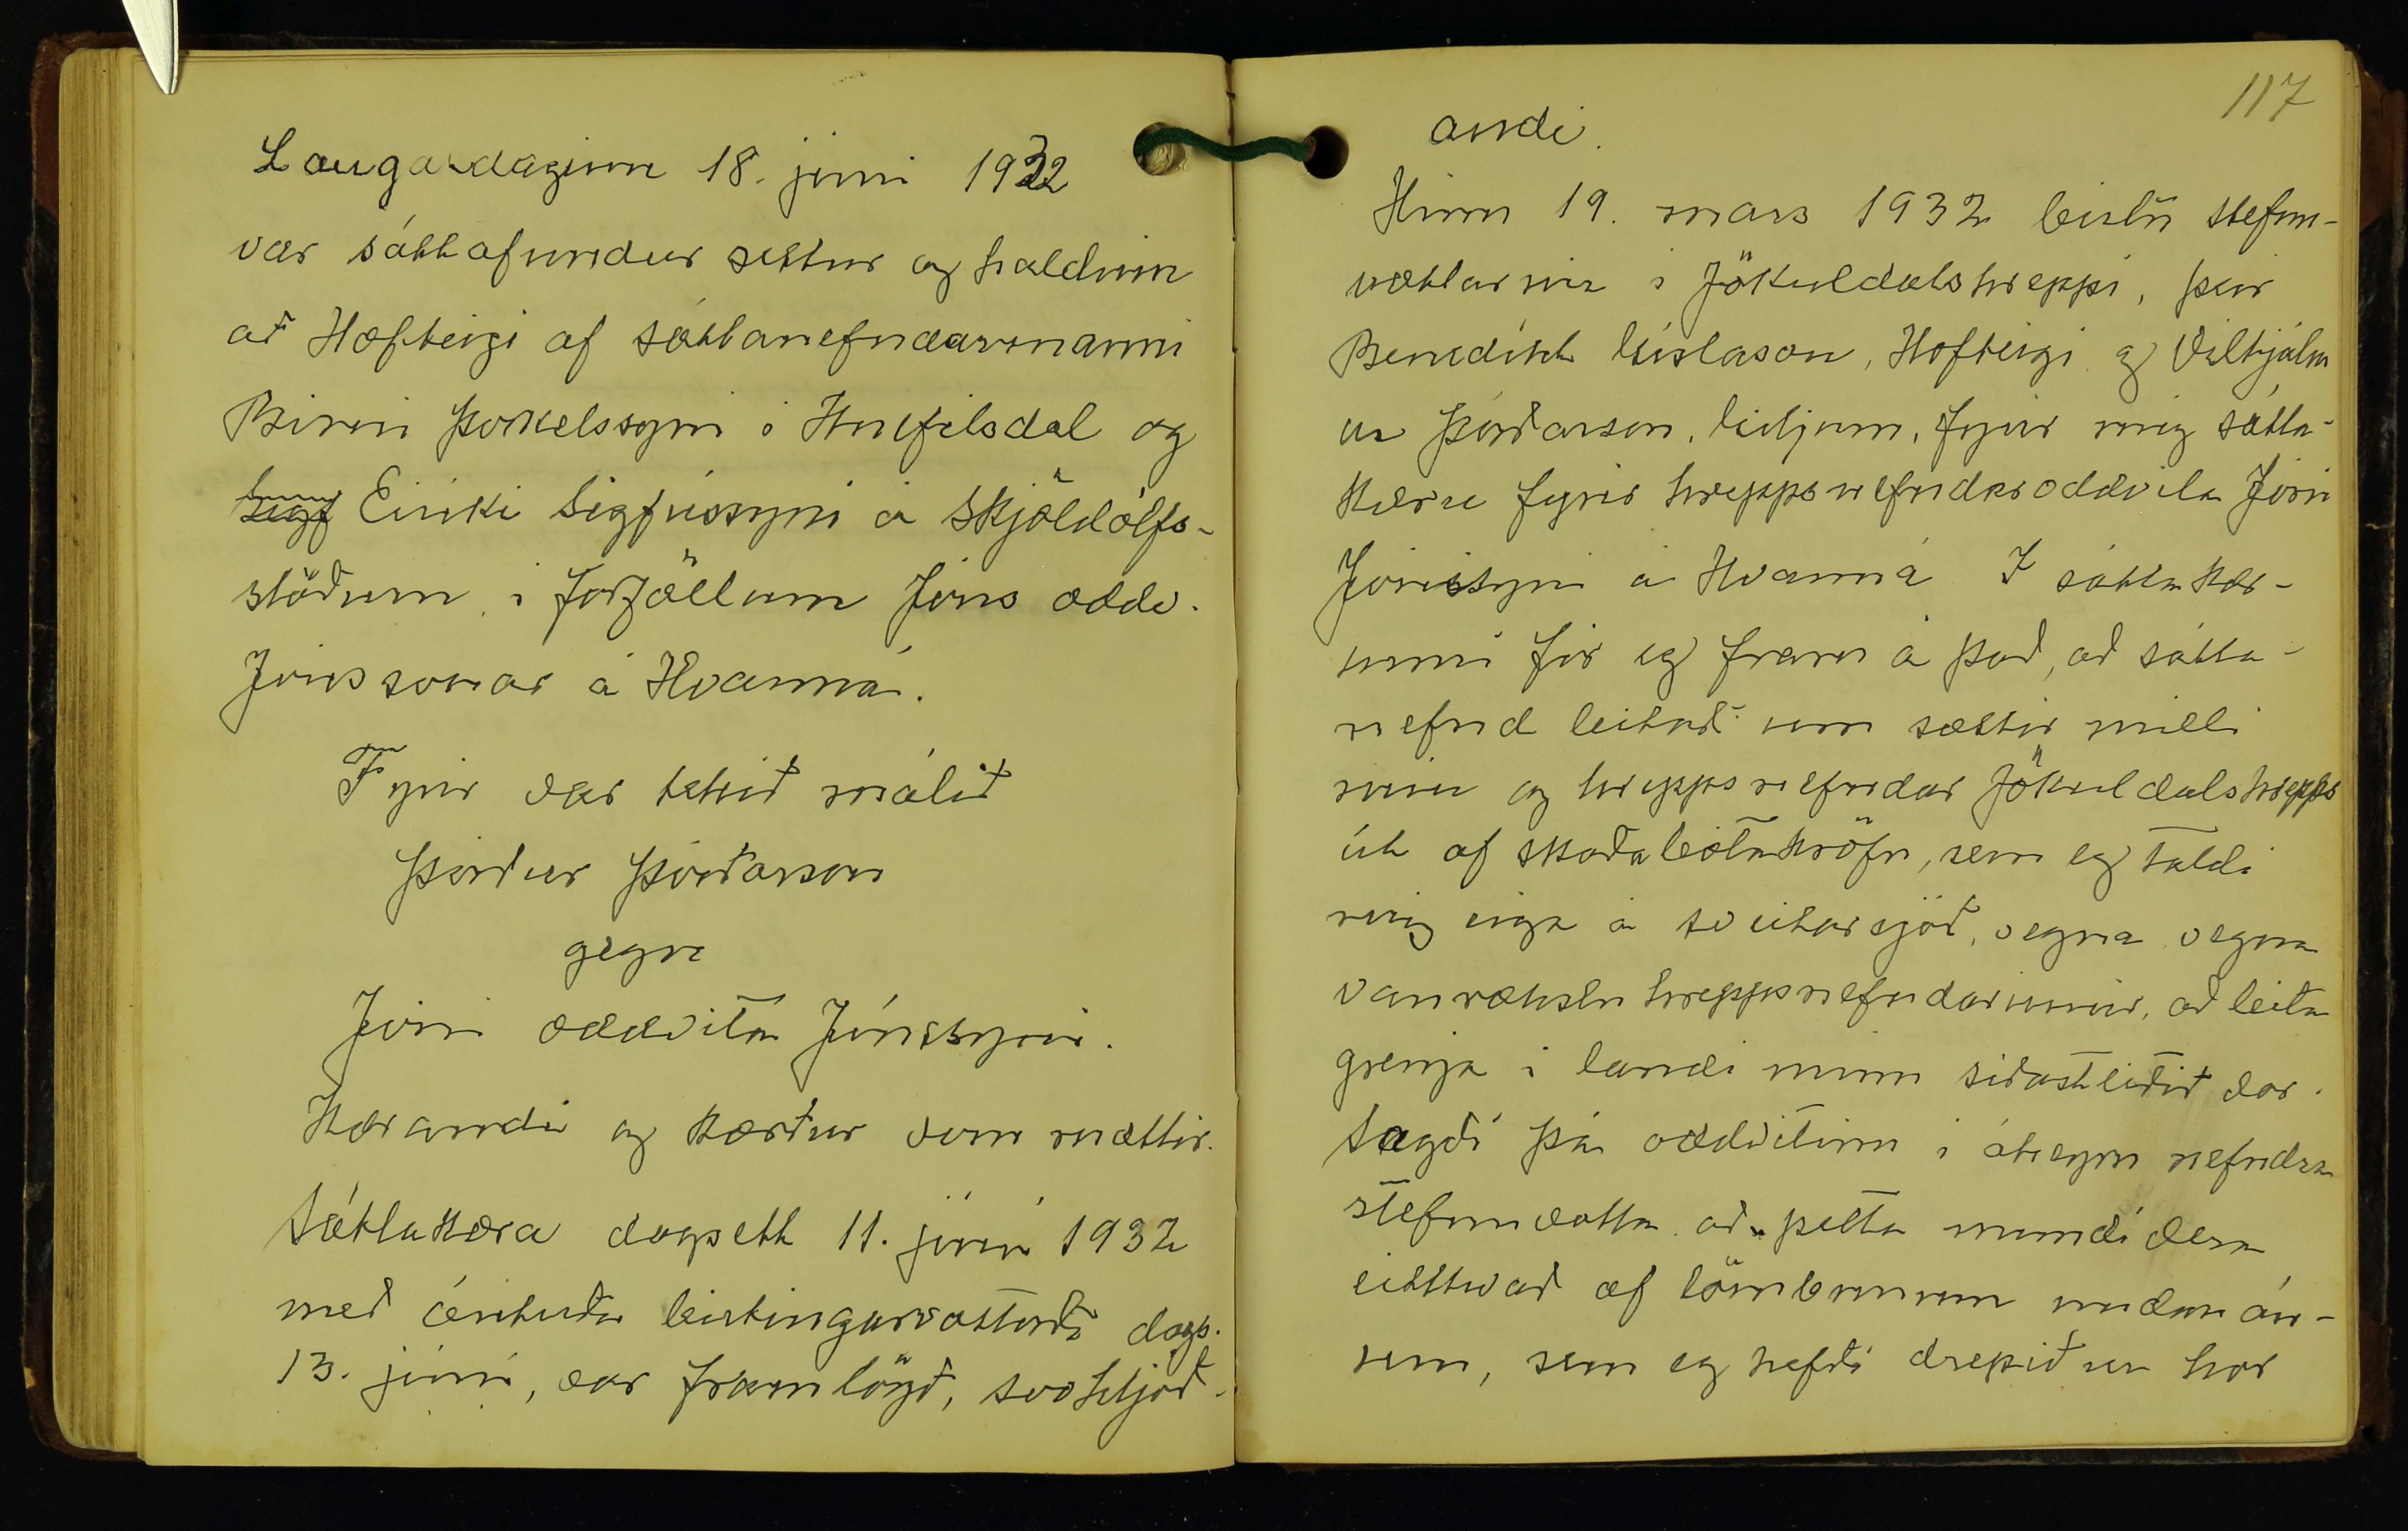 Laugardaginn 18. júní 1932
var sáttafundur settur og haldinn
að Hofteigi af sáttanefndarmanni
Birni Þorkelssyni í Hnefilsdal og
Sigf Eiríki Sigfússyni á Skjöldólfs-
stöðum, í forföllum Jóns oddv.
Jónssonar á Hvanná.
Fyrir var tekið málið
Þórður Þórðarson
gegn
Jóni oddvita Jónssyni.
Kærandi og kærður voru mættir.
Sáttakæra dagsett 11. júní 1932
með áritaðu birtingarvottorði dags.
13. júní, var framlögð, svohljóð-
117
andi.
Hinn 19. mars 1932 birtu stefnu-
vottarnir í Jökuldalshreppi, þeir
Benedikt Gíslason, Hofteigi og Vilhjálm
ur Þórðarson, Giljum, fyrir mig sátta-
kæru fyrir hreppsnefndaroddvita Jóni
Jónssyni á Hvanná I sáttakær-
unni fór eg fram á það, að sátta-
nefnd leitaði um sættir milli
mín og hreppsnefndar Jökuldalshrepps
út af skaðabótakröfu, sem eg taldi
mig eiga á sveitarsjóð, vegna vegna
vanrækslu hreppsnefndarinnar, að leita
grenja í landi mínu síðastliðið vor.
Sagði þá oddvitinn í áheyrn nefndra
stefnuvotta að þetta mundi vera
eitthvað af lömbunum undan án-
um, sem eg hefði drepið úr hor